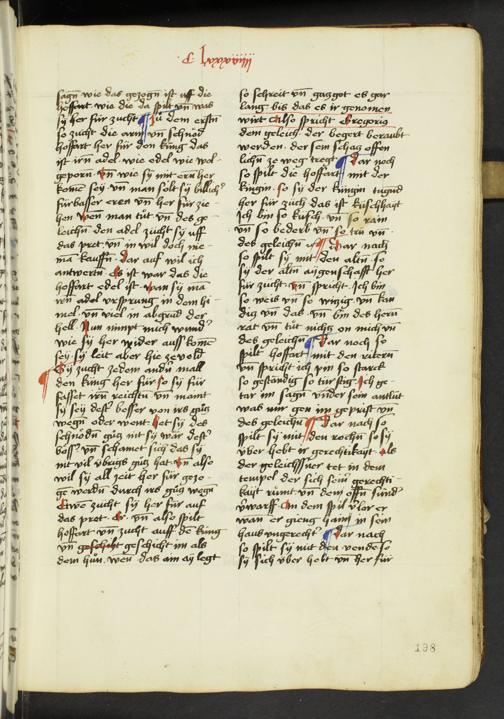 sagn wie das gezogn ist uff die
hoffart wie die da spilt vn̄ was
sÿ her für zucht Zu dem erstn
so zucht die arm vn̄ schnöd
hoffart her für den küng das
ist irn adel wie edel wie wol
geporn vn̄ wie sÿ mit ern her
kome seÿ vn̄ man solt sÿ billich
fürbasser eren vn̄ her für zie
hen Wen man tüt vn̄ des ge
leichn den adel zucht sÿ uff
das pret vn̄ in wil doch nie
mā kauffn dar auf wil ich
antwertn Es ist war das die
hoffart edel ist wan sÿ irn
adel ursprung in dem hi
mel vn̄ viel in abgrud der
hell Nun nimpt mich wund
wie sÿ her wider auff kome
seÿ leit aber hie
Sÿ zucht zedem andn mall
den küng her für so sÿ für
fasset irn reichtn vn̄ maint
sÿ seÿ dest besser von irs gūtz
wegn oder went het sÿ des
schnödn gütz nit sÿ wār dest
boss vn̄ schamet sich das sÿ
nit vil übrigs gütz hat vn̄ also
wil sÿ all zeit her für gezo
ge werdn durch irs gūtz wegn
Etwe zucht sÿ her für auf
das pret Er vn̄ also spilt
hoffart vn̄ zucht auff de küng
vn̄ geschicht im als
dem hūn wen das ain aÿ legt
so schreit vn̄ gazgot es gar
lang bis das es ir genomen
wirt Also spricht Gregoriꝰ
dem geleich der begert beraubt
werden der sein schaz offen
lichn ze weg tregt Dar noch
so spilt die hoffart mit der
küngin so sÿ der küngin tugind
her für zuch das ist küschhayt
Ich bin so küsch vn̄ so rain
vn̄ so bederb vn̄ so trū vn̄
des geleichn Dar nach
so spilt sÿ mit den altn so
sÿ der altn aÿgenschafft her
für zucht vn̄ spricht Ich bin
so weis vn̄ so wizig vn̄ kan
dig vn̄ das vn̄ bin des hern
rat vn̄ tüt nichtz on mich vn̄
des geleichn Dar noch so
spilt hoffart mit den ritern
vn̄ spricht ich pin so starck
so geständig so türstig Ich ge
tar im sagn under sein antlüt
was mir gen im geprist vn̄
des geleichn Dar nach so
spilt sÿ mit den rochn so sÿ
über hebt ir gerechtikayt als
der geleichssner tet in dem
tempel der sich seiner gerechti
kayt rümt vn̄ dem offn sünd
vwarff An dem spil vlor er
wan er gieng haim in sein
haus ungerecht Dar nach
so spilt sÿ mit den vendē so
sÿ sich über hebt vn̄ her für
198